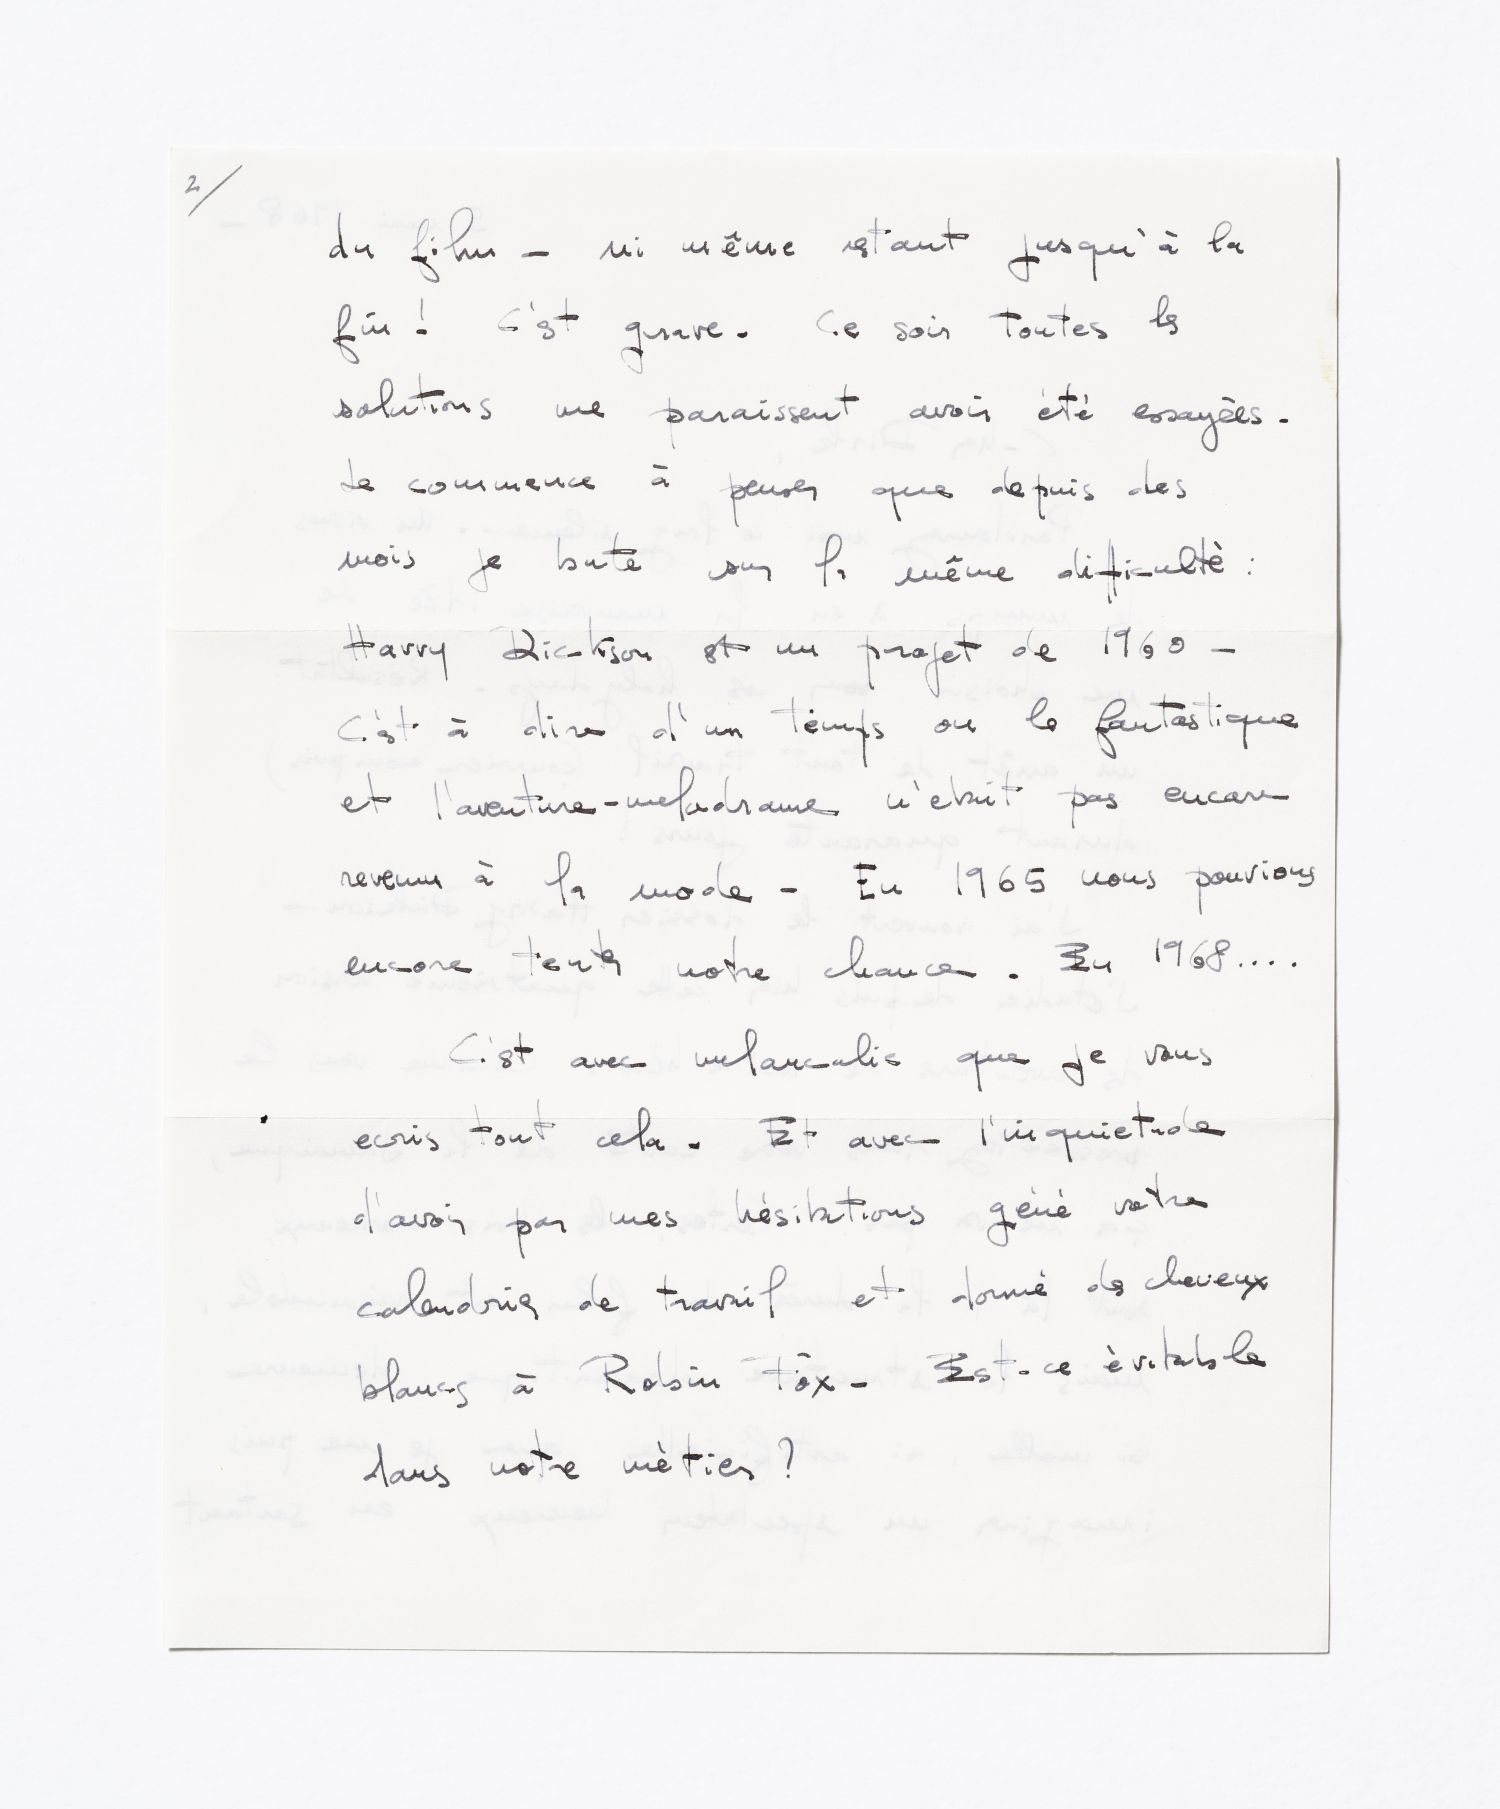 2/
du film - ni même restant jusqu'à la
fin! C'est grave. Ce soir toutes les
solutions me paraissent avoir été essayées.
Je commence à penser que depuis des
mois je bute sur la même difficulté :
Harry Dickson est un projet de 1960 -
C'est à dire d'un temps ou le fantastique
et l'aventure-melodrame n'etait pas encore
revenu à la mode - En 1965 nous pouvions
encore tenter notre chance. En 1968....
C'est avec melancolie que je vous
ecris tout cela. Et avec l'inquietude
d'avoir par mes hésitations géné votre
calendrier de travail et donné des cheveux
blancs à Robin Fox - Est-ce évitable
dans notre métier ?